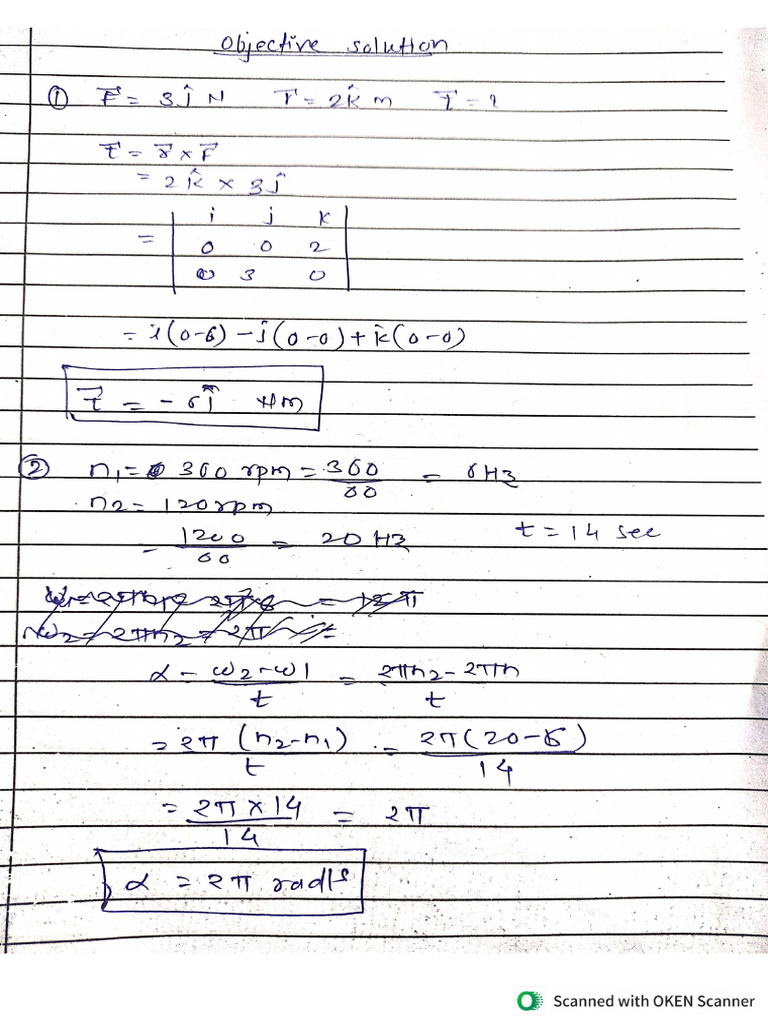 Objective solution
① F⃗ = 3ĵ N r⃗ = 2k̂ m τ⃗ = ?
τ⃗ = r⃗ × F⃗
= 2k̂ × 3ĵ
= | i j k |
| 0 0 2 |
| 0 3 0 |
= i(0-6) - ĵ(0-0) + k̂(0-0)
τ⃗ = - 6ĵ Nm
② n₁ = 360 rpm = 360/60 = 6Hz
n₂ = 120rpm
= 1200/60 = 20 Hz t = 14 sec
α = ω2-ω1/t = 2πn₂-2πn/t
= 2π (n₂-n₁)/t = 2π(20-6)/14
= 2π × 14/14 = 2π
α = 2π rad/s
Scanned with OKEN Scanner